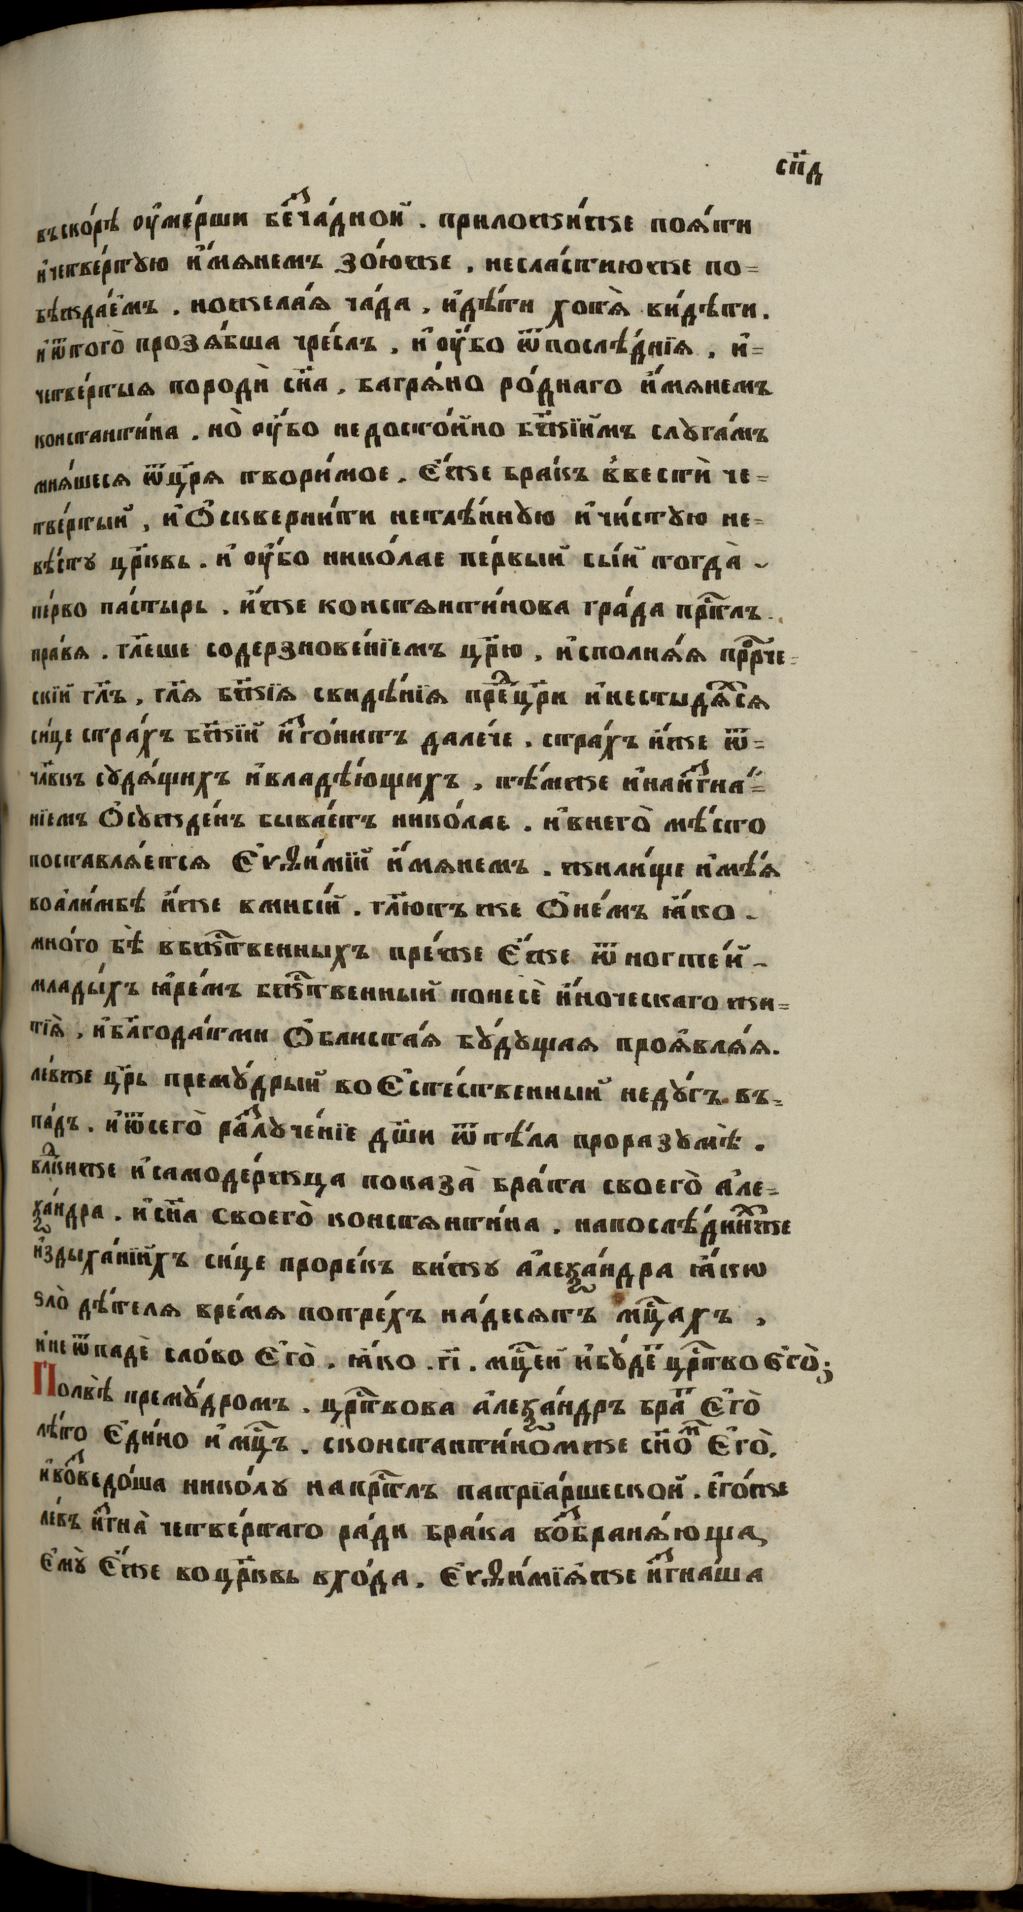 сп҃д
въско́рѣ оу҆ме́рши бе́ꙁча́дной . приложи́же поѧ́ти
и҆четве́ртꙋю и҆́мѧнемъ ꙁо́юже , несла́стїюже по=
бѣжда́емъ . нѡжела́ѧ ча́да , и҆дѣ́ти хотѧ̀ ви́дѣти .
и҆ѿтого̀ проꙁѧ́бша чре́слъ , и҆ оу҆́бо ѿпослѣ́днїѧ , и҆=
четве́ртыѧ породѝ сн҃а , багрѧ́но ро́днаго и҆́мѧнемъ
константи́на . но̀ оу҆́бо недосто́йно бж҃їимъ слꙋга́мъ
мнѧ́шесѧ ѿцр҃ѧ твори́мое . Є҆́же бра́къ в҆вестѝ че=
тве́ртый , и҆ Ѻ҆скверни́ти нетлѣ́ннꙋю и҆ чи́стꙋю не=
вѣ́стꙋ цр҃ковь . и҆ оу҆́бо нико́лае пе́рвый сы́й тогда̀
пе́рво па́стырь . и҆́же констѧнти́нова гра́да пр҃тлъ
пра́вѧ . гл҃еше содерꙁнове́нїемъ цр҃ю , и҆сполнѧ́ѧ прⷪ҇рче=
скїй гл҃ъ , гл҃ѧ бж҃їѧ свидѣ́нїѧ преⷣцр҃и и҆нестыдѧ́сѧ
си́це стра́хъ бж҃їй и҆ꙁго́нитъ дале́че , стра́хъ и҆́же ѿ=
чл҃вкъ сꙋдѧ́щихъ и҆владѣ́ющихъ , тѣ́мже и҆наи҆ꙁгна́=
нїемъ Ѻ҆сꙋжде́нъ быва́етъ нико́лае . и҆внего̀ мѣ́сто
поставлѧ́етсѧ Є҆ѵѳи́мїй и҆́мѧнемъ . жили́ще и҆мѣ́ѧ
воа҆ли́мбѣ и҆́же вмиси́й . гл҃ютъ же Ѻ҆не́мъ ꙗ҆́ко
мно́го бѣ̀ вбж҃твенныхъ пре́же Є҆́же ѿ ногте́й
млады́хъ ꙗ҆ре́мъ бж҃твенный понесѐ и҆́ноческаго жи=
тїѧ̀ , и҆бл҃года́тми Ѻ҆блиста́ѧ бꙋ́дꙋщаѧ проꙗ҆влѧ́ѧ .
ле́вже цр҃ь премꙋ́дрый во Є҆сте́ственный недꙋ́гъ . въ=
па́дъ . и҆ѿсего̀ раꙁлꙋче́нїе дш҃и ѿтѣ́ла пророꙁꙋмѣ̀ .
влⷣкꙋже и҆самоде́ржца показа̀ бра́та своего̀ а҆ле=
ѯа́ндра . и҆ сн҃а своего̀ констѧнти́на . напослѣ́днихже
и҆ꙁдыха́нїихъ си́це проре́къ ви́жꙋ а҆леѯа́ндра ꙗ҆́кѡ
ѕло̀ дѣ́телѧ вре́мѧ потре́хъ на́десѧтъ мцⷭ҇ахъ ,
и҆не ѿпадѐ сло́во Є҆го̀ . ꙗ҆́ко . г҃і . мцⷭ҇ей и҆бꙋ́деⷮ црⷭ҇тво Є҆го̀ ;
Полвѣ̀ премꙋ́дромъ . црⷭ҇твова а҆леѯа́ндръ браⷮ Є҆го̀
лѣ́то Є҆ди́но и҆ мцⷭ҇ъ . сконстанти́номже сн҃оⷨ Є҆го̀ ,
и҆воꙁведо́ша нико́лꙋ напрⷭ҇тлъ патрїа́ршеской . Є҆го́же
ле́въ и҆ꙁгна̀ четве́ртаго ра́ди бра́ка воꙁбранѧ́юща
Є҆мꙋ̀ Є҆́же во цр҃ковь вхо́да . Є҆ѵѳи́мїѧже и҆ꙁгна́ша